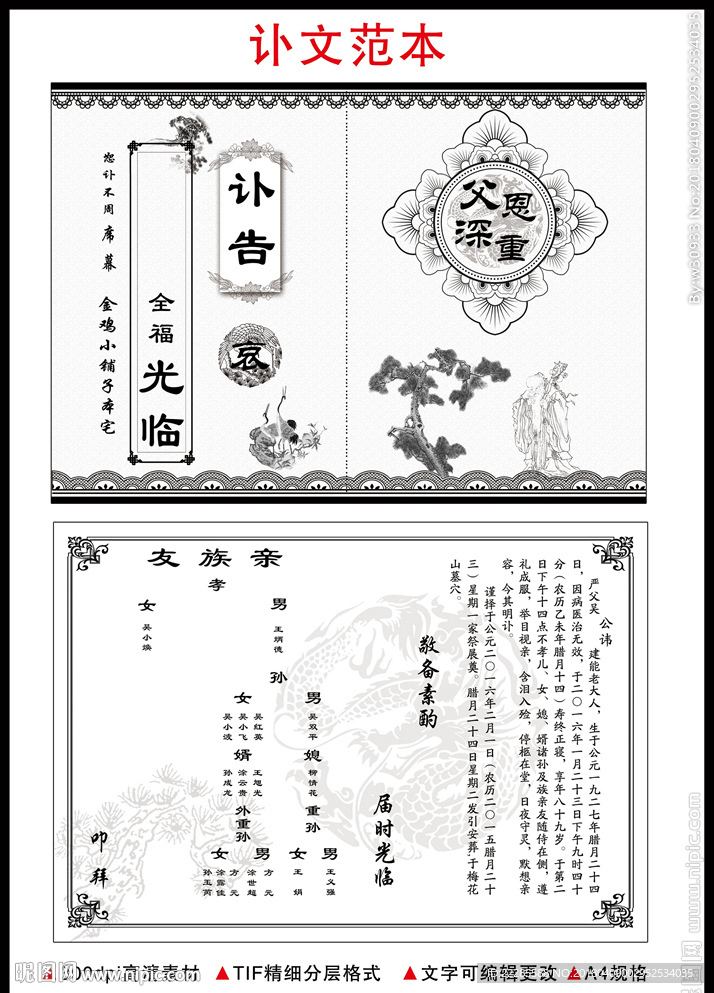 讣文范本
By:w30933 No.20180409002952534035
父恩
深重
讣告
哀
全福光临
恕讣不周 席幕 金鸡小铺子本宅
严父吴 公讳 建能老大人，生于公元一九二七年腊月二十四
日，因病医治无效，于二〇一六年一月二十三日下午九时四十
分（农历乙未年腊月十四）寿终正寝，享年八十九岁。于第二
日下午十四点不孝儿、女、媳、婿诸孙及族亲友随侍在侧，遵
礼成服，举目视亲，含泪入殓，停柩在堂，日夜守灵，默想亲
容，今其明讣。
谨择于公元二〇一六年二月一日（农历二〇一五腊月二十
三）星期一家祭展奠。腊月二十四日星期二发引安葬,于梅花
山墓穴。
敬备素酌
届时光临
友族亲
孝
男
王炳德
女
吴小焕
孙
男
吴双平
女
吴红英
吴小飞
吴小波
媳
柳情花
婿
王旭光
涂云贵
孙成龙
重孙
男
王义强
女
王娟
外重孙
男
方元
涂世超
女
方元
涂露佳
孙玉芮
叩拜
昵图网 www.nipic.com
300dpi高清素材
▲TIF精细分层格式
▲文字可编辑更改
▲A4规格